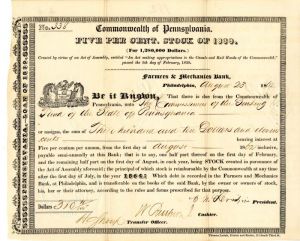 No. 338
Commonwealth of Pennsylvania.
FIVE PER CENT. STOCK OF 1839.
(For 1,280,000 Dollars.)
Created by virtue of an Act of Assembly, entitled "An Act making appropriations to the Canals and Rail Roads of the Commonwealth,"
passed the 5th day of February, 1839.
Farmers & Mechanics Bank,
Philadelphia, August 23 18
Be it Known, That there is due from the Commonwealth of
Pennsylvania, unto The Commissioners of the
Fund of the State of Pennsylvania
or assigns, the sum of Three hundred and ten Dollars and
cents bearing interest at
Five per centum per annum, from the first day of August inclusive,
payable semi-annually at this Bank; that is to say, one half part thereof on the first day of February,
and the remaining half part on the first day of August, in each year, being STOCK created in pursuance of
the Act of Assembly aforesaid; the principal of which stock is reimburseable by the Commonwealth at any time after
the first day of July, in the year 1864; Which debt is recorded in the Farmers and Mechanics Bank,
at Philadelphia, and is transferable on the books of the said Bank, by the owner or owners of stock,
his, her or their attorney, according to the rules and forms prescribed for that purpose.
Dollars
President.
Cashier.
Transfer Officer.
PENNSYLVANIA. LOAN OF 1839.